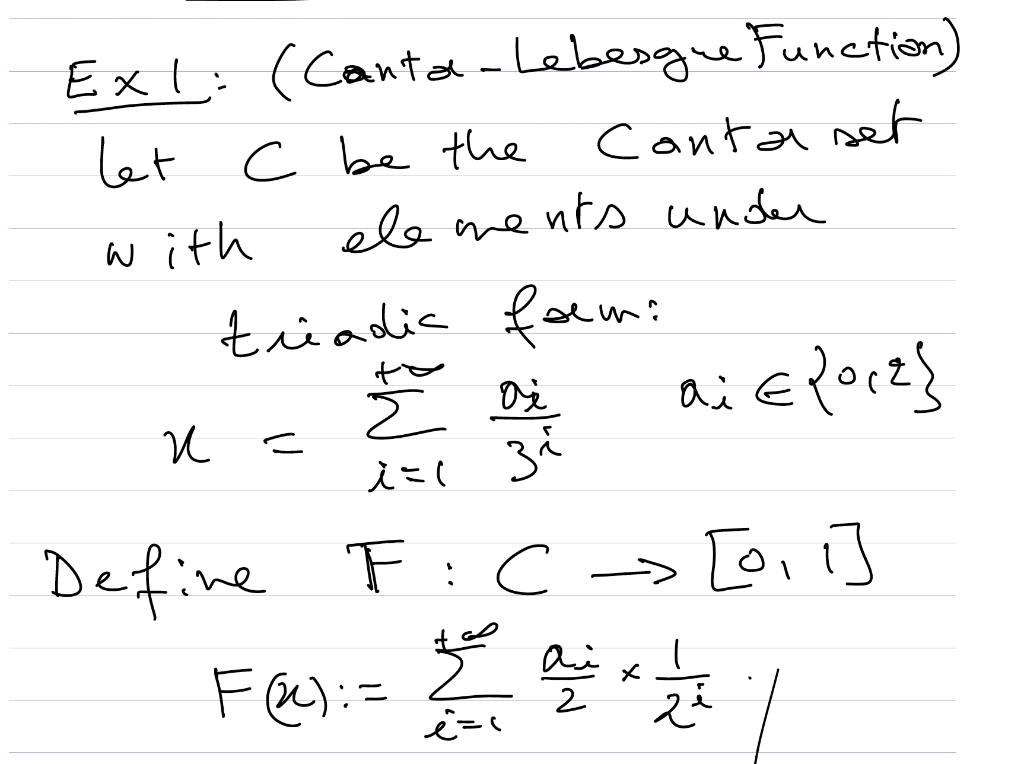 Ex 1: (Cantor-Lebesgue Function)
let C be the Cantor set
with elements under
triadic form:
x = \sum_{i=1}^{+∞} \frac{a_i}{3^i}   a_i ∈ {0,2}
Define F : C → [0,1]
F(x) := \sum_{i=1}^{+∞} \frac{a_i}{2} × \frac{1}{2^i} ./